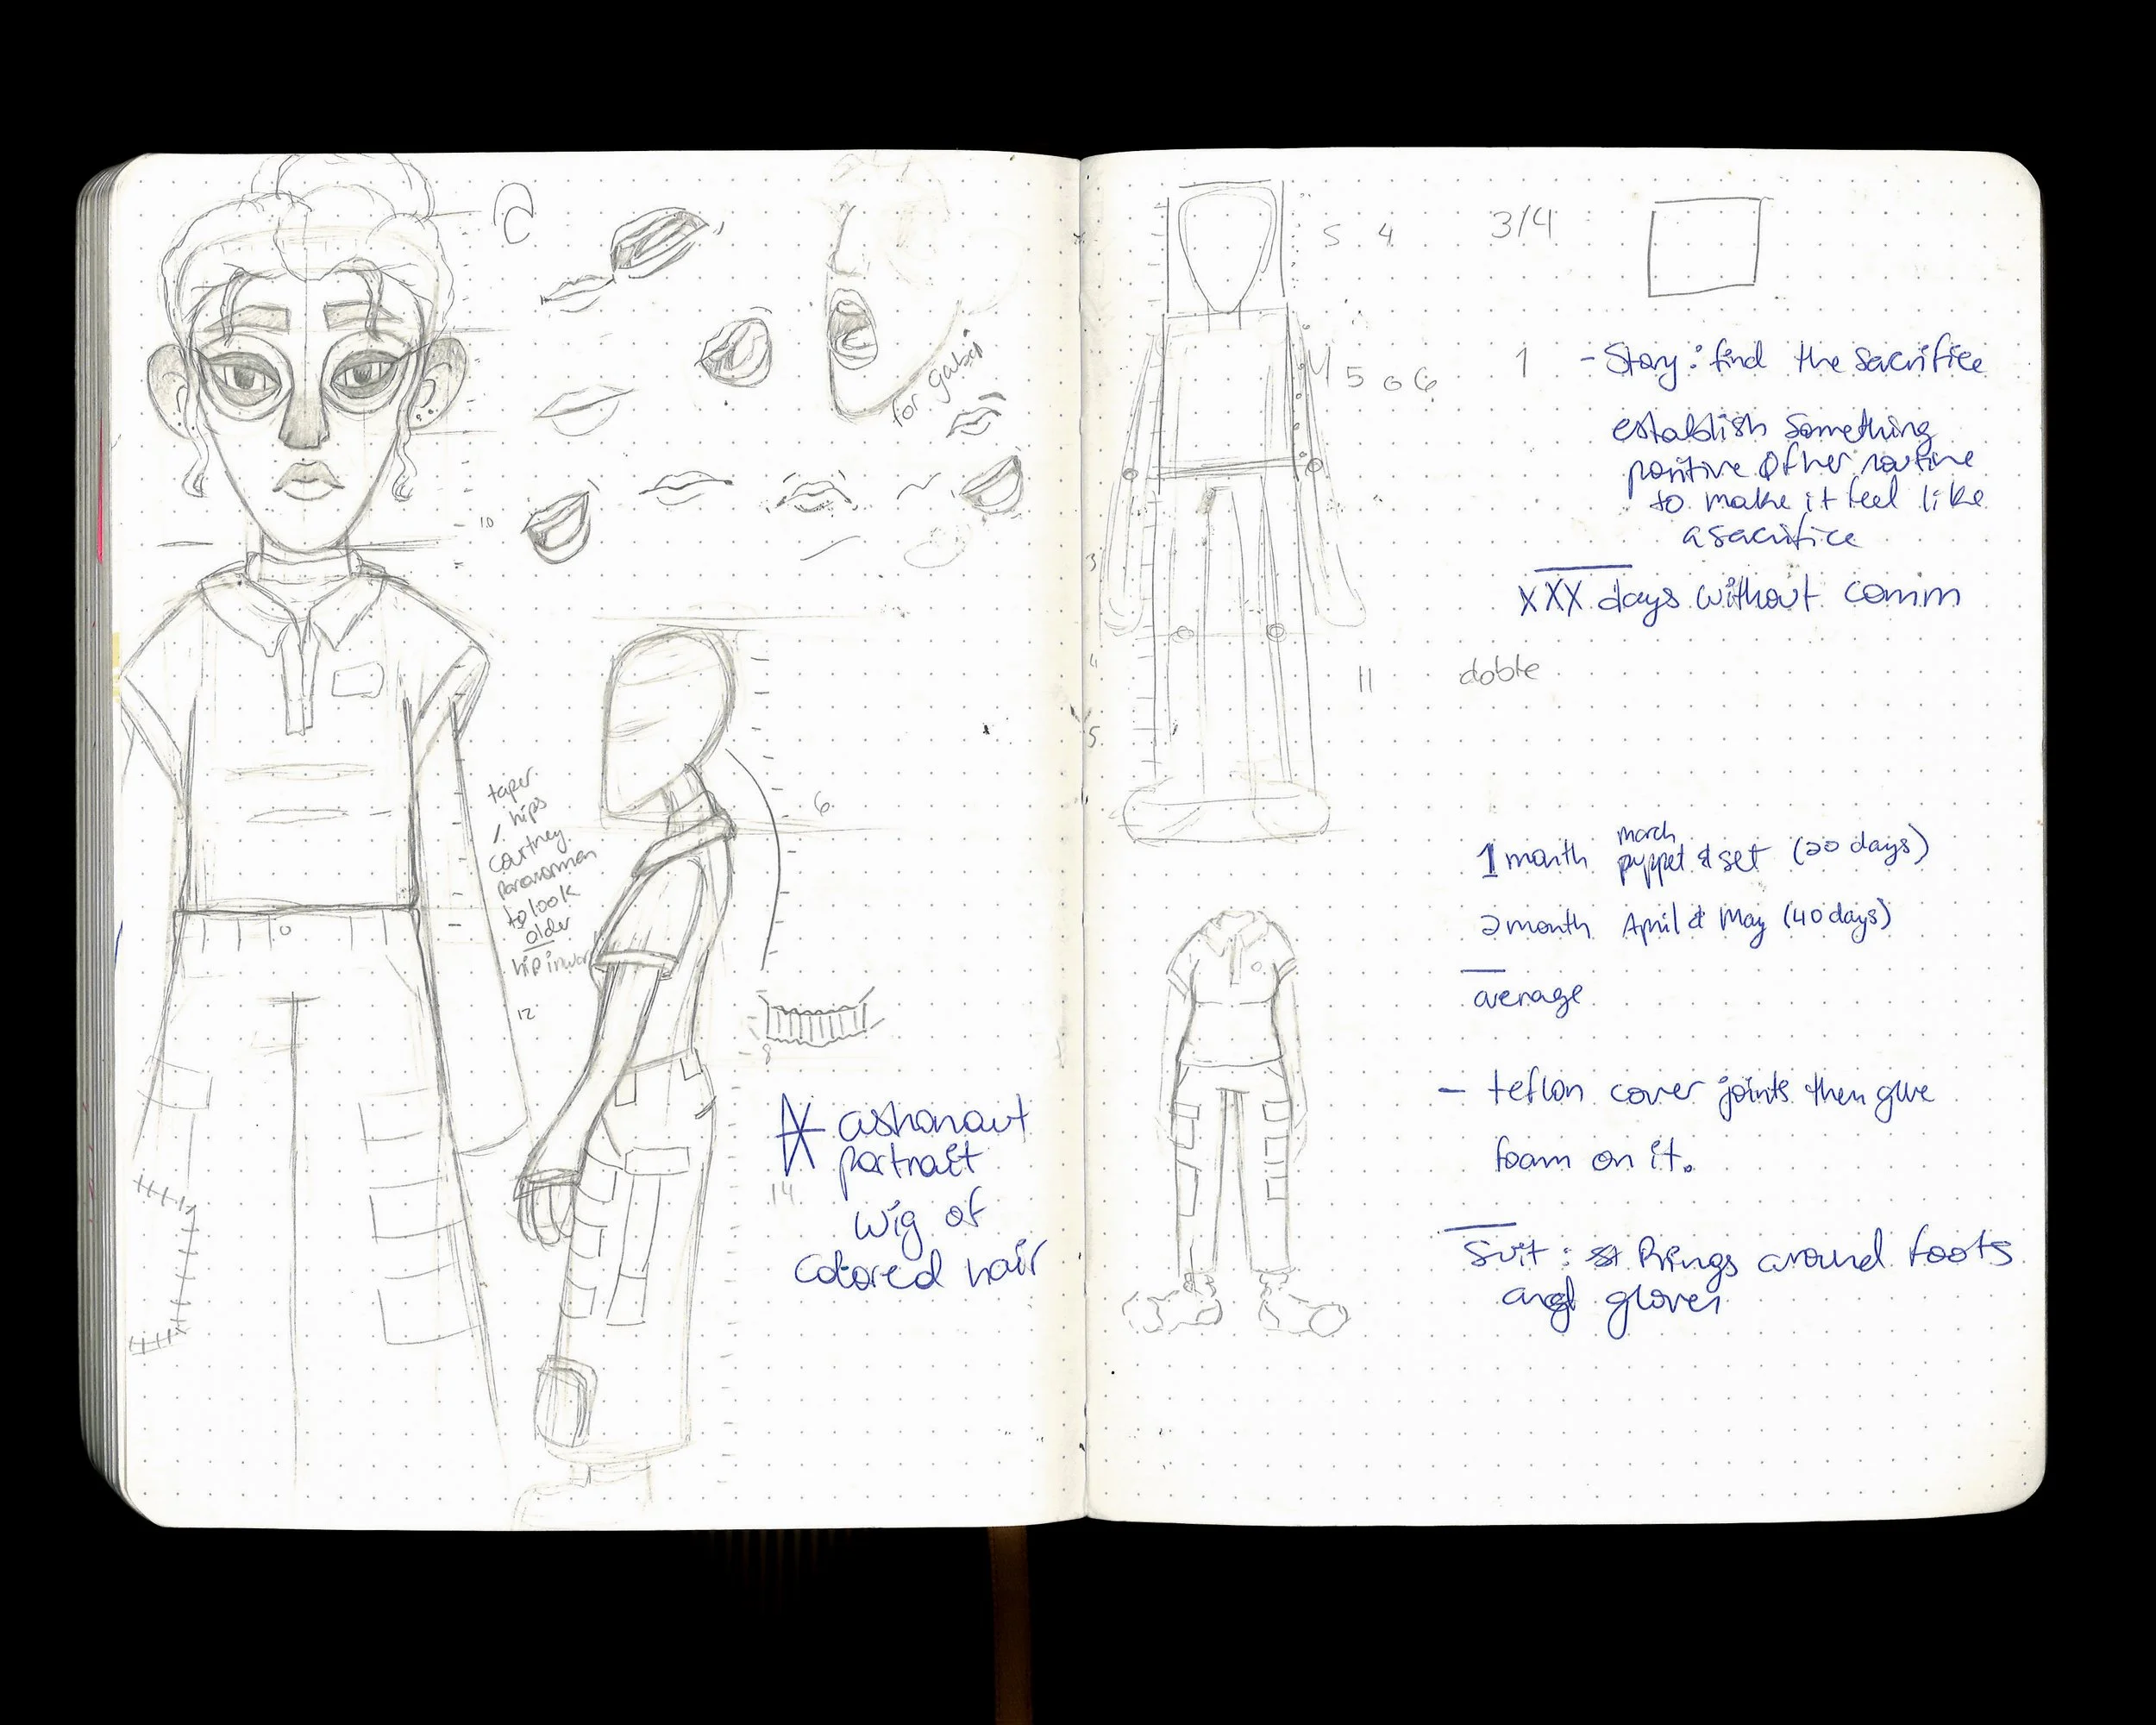 10
for gabin
taper
hips
courtney
paranorman
to look
older
hip inwar
12
6
8
14
astronaut
portrait
wig of
colored hair
5 4
3/4
4 5 o 6
1
- Story : find the sacrifice
establish something
positive of her routine
to make it feel like
a sacrifice
XXX days without comm
3
4
5
11
doble
1 month march
puppet & set (20 days)
2 month April & May (40 days)
average
- teflon cover joints then glue
foam on it.
Suit : Rings around foots
and gloves